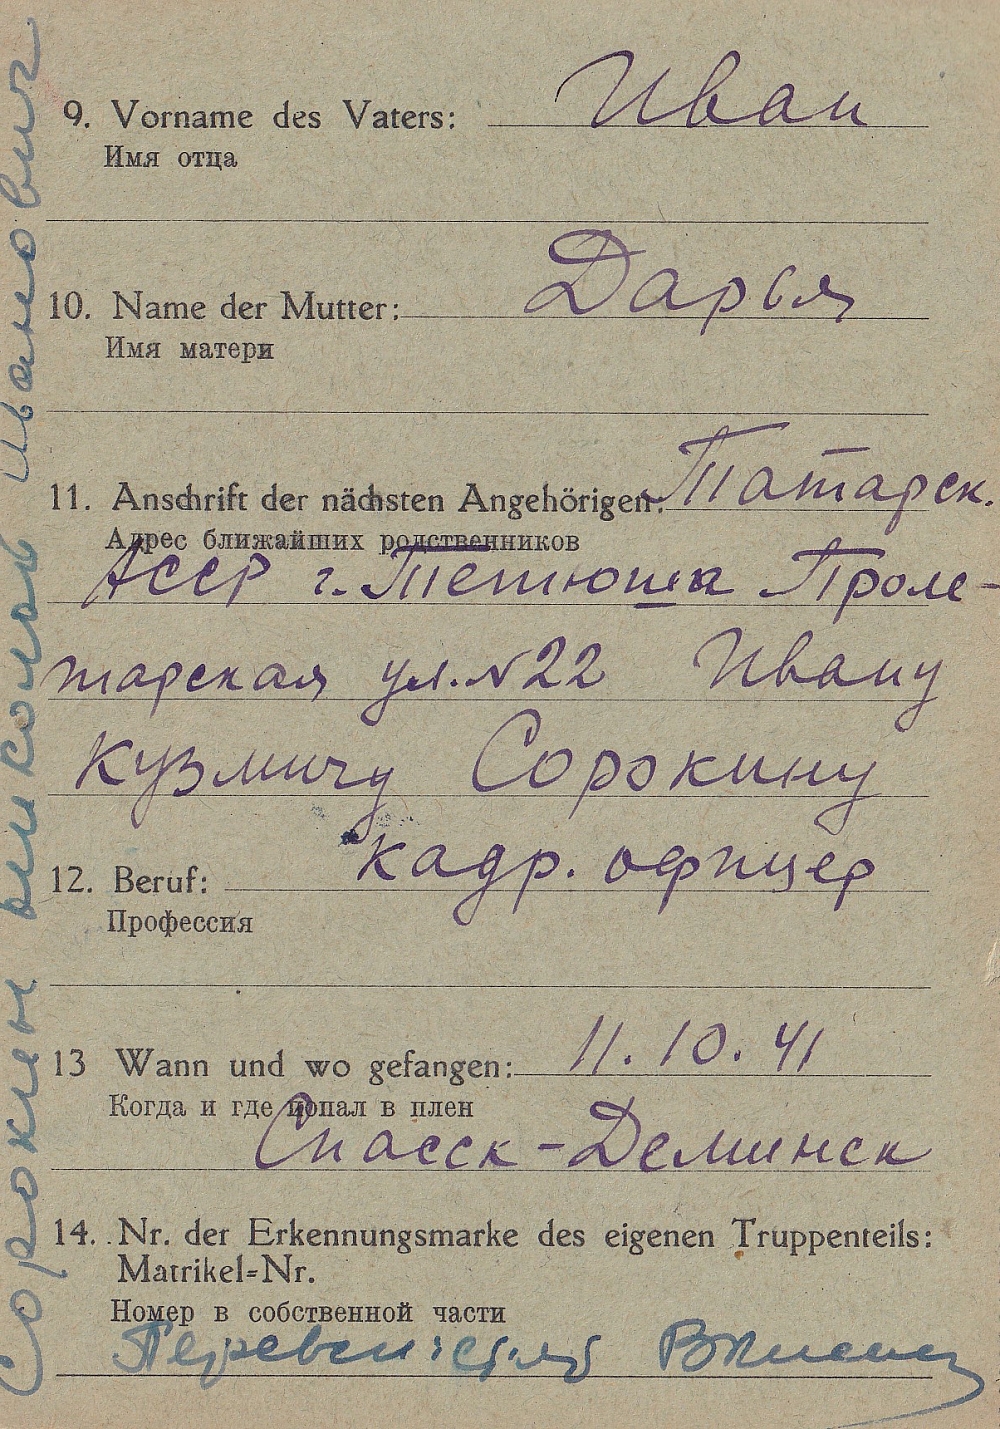 9. Vorname des Vaters: Иван
Имя отца
10. Name der Mutter: Дарья
Имя матери
11. Anschrift der nächsten Angehörigen: Татарск.
Адрес ближайших родственников
АССР г. Тетюша Проле-
тарская ул. N 22 Ивану
Кузмичу Сорокину
12. Beruf: кадр. офицер
Профессия
13 Wann und wo gefangen: 11.10.41
Когда и где попал в плен
Спасск-Деминск
14. Nr. der Erkennungsmarke des eigenen Truppenteils:
Matrikel=Nr.
Номер в собственной части
Сорокин Николай Иванович